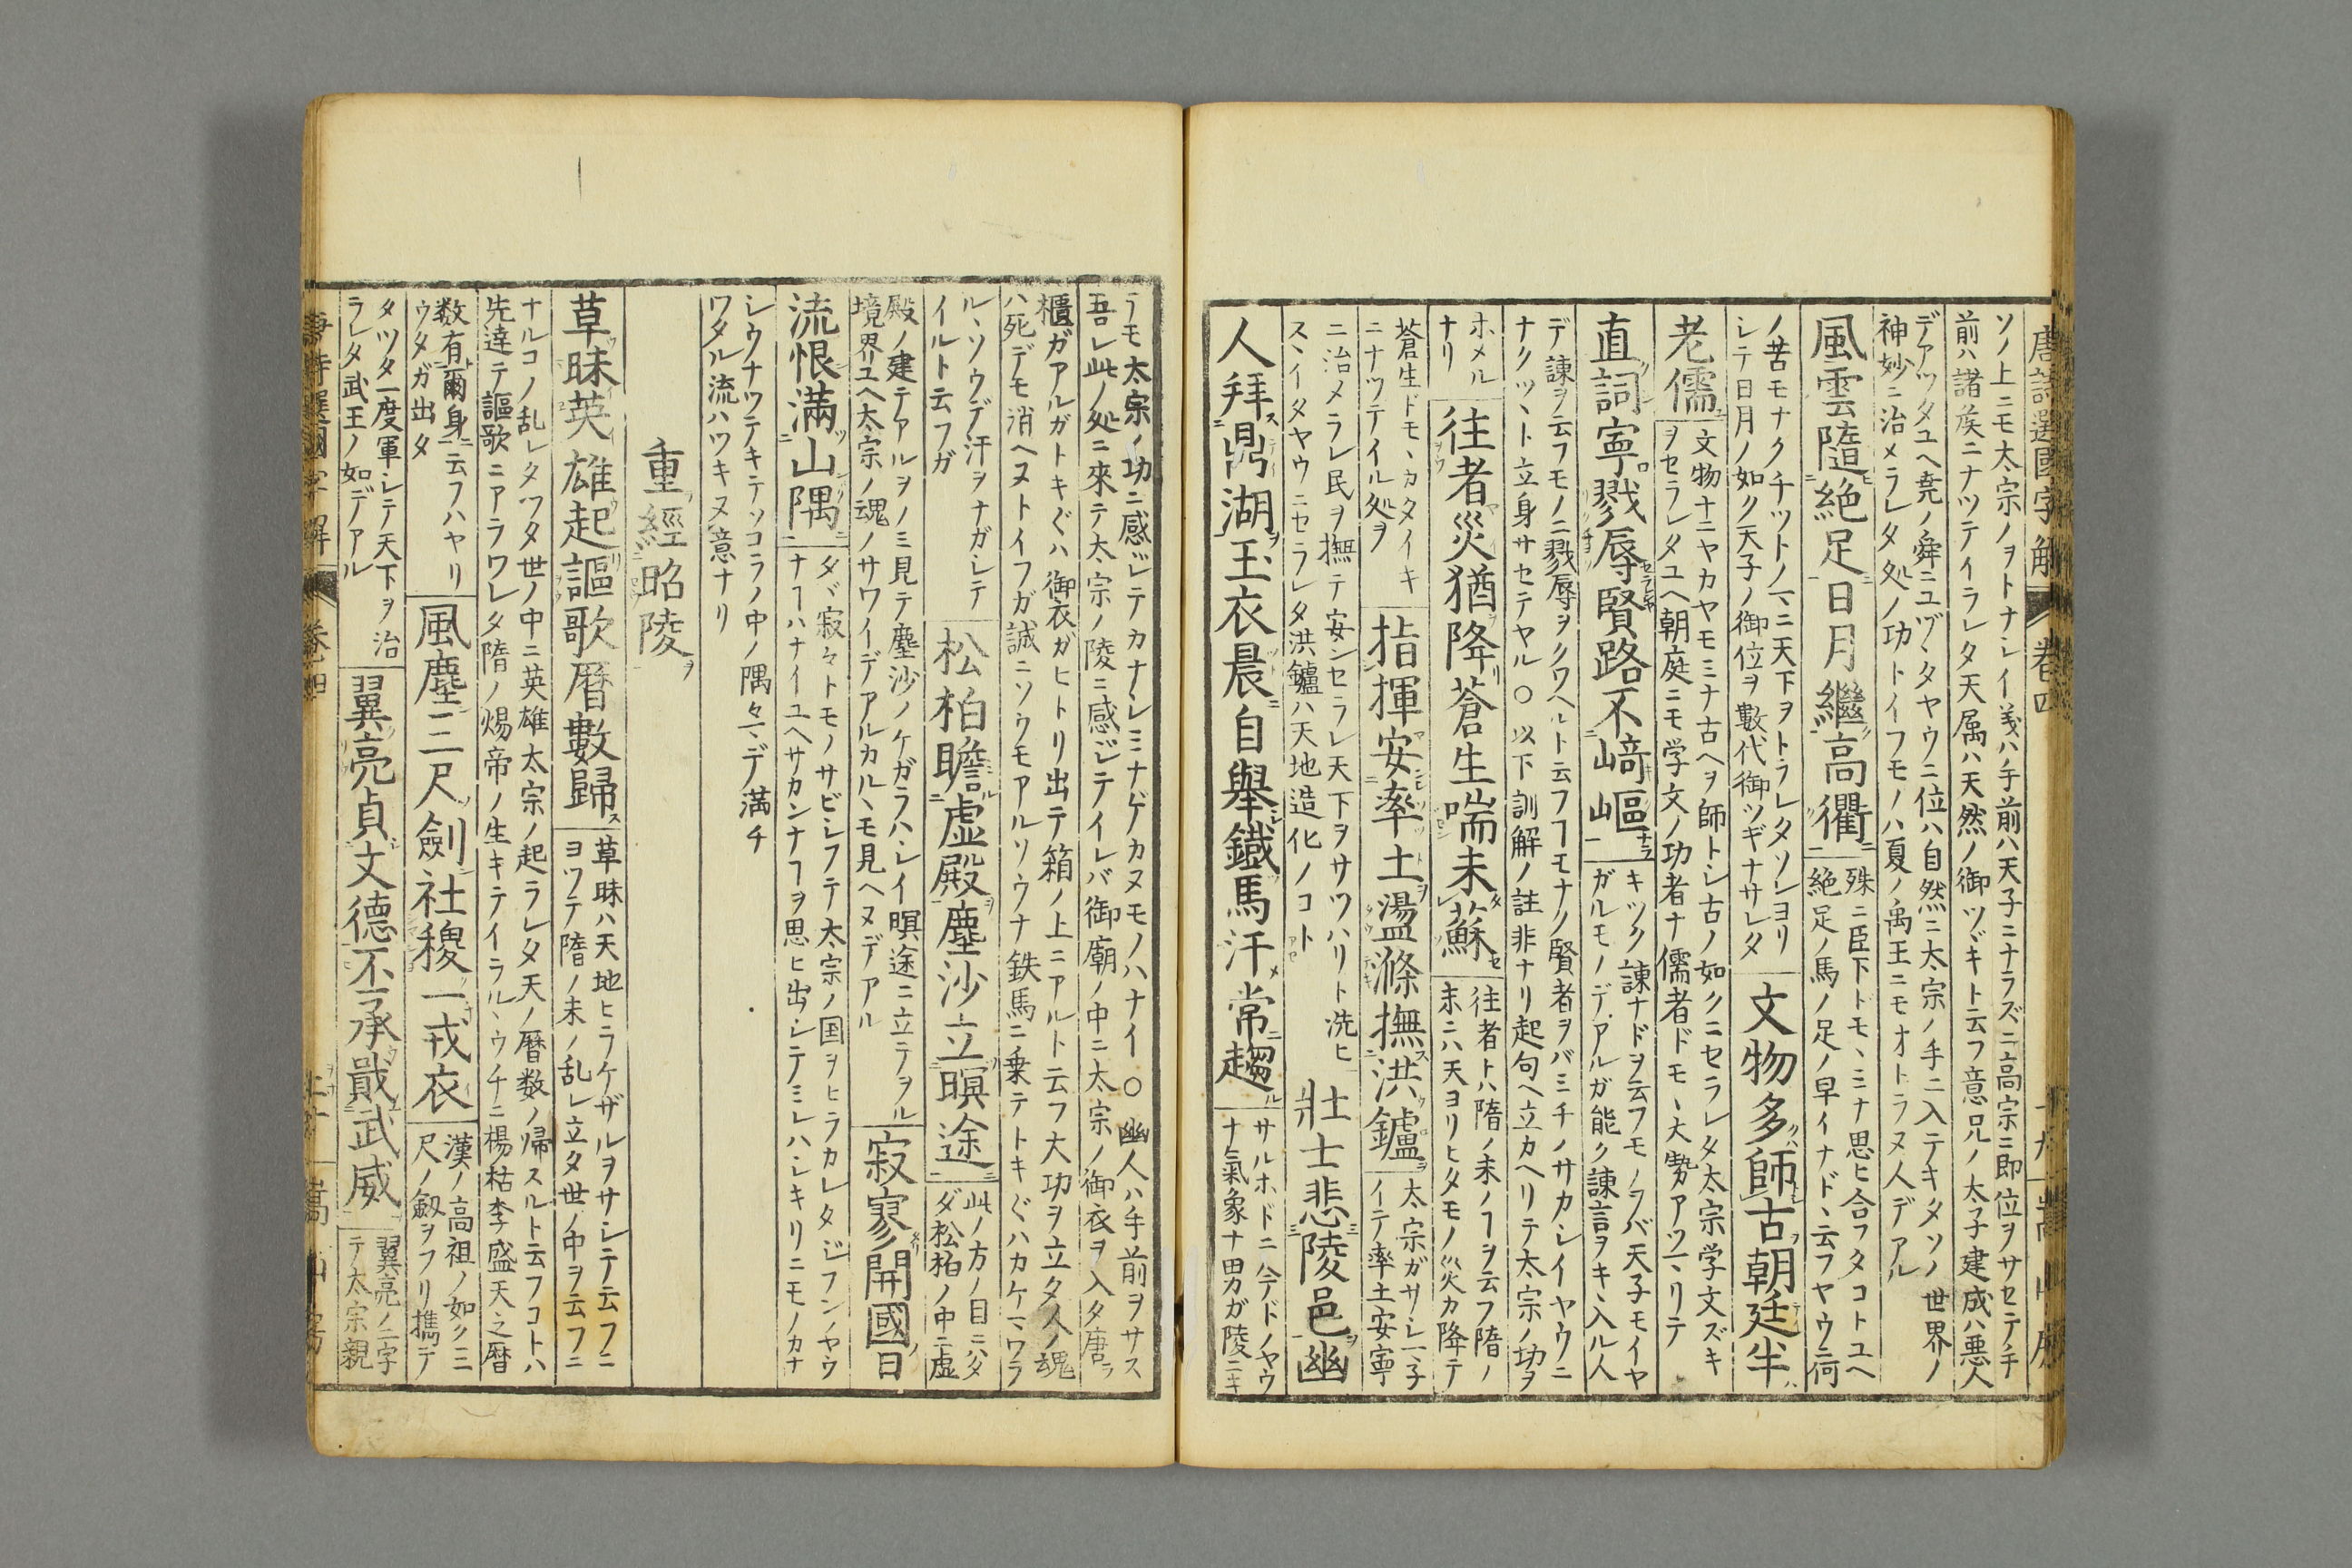 唐詩選國字解 卷四
ソノ上ニモ太宗ノヲトナシイ義ハ手前ハ天子ニナラズニ高宗ニ即位ヲサセテ手
前ハ諸侯ニナツテイラレタ天属ハ天然ノ御ツヾキト云フ意兄ノ太子建成ハ悪人
デアツタユヘ堯ノ舜ニユヅヽタヤウニ位ハ自然ニ太宗ノ手ニ入テキタソノ世界ノ
神妙ニ治メラレタ処ノ功トイフモノハ夏ノ禹王ニモオトラヌ人デアル
風雲隨絶足日月繼高衢
殊ニ臣下ドモヽミナ思ヒ合フタコトユヘ
絶足ノ馬ノ足ノ早イナドヽ云フヤウニ何
ノ苦モナク千ツトノマニ天下ヲトラレタソレヨリ
シテ日月ノ如ク天子ノ御位ヲ數代御ツギナサレタ
文物多師古朝廷半
老儒
文物ナニヤカヤモミナ古ヘヲ師トシ古ノ如クニセラレタ太宗学文ズキ
ヲセラレタユヘ朝庭ニモ学文ノ功者ナ儒者ドモヽ大勢アツマリテ
直詞寧戮辱賢路不﨑嶇
キツク諫ナドヲ云フモノヲバ天子モイヤ
ガルモノデアルガ能ク諫言ヲキヽ入ル人
デ諫ヲ云フモノニ戮辱ヲクワヘルト云フヿモナク賢者ヲバミチノサカシイヤウニ
ナクツヽト立身サセテヤル〇以下訓解ノ註非ナリ起句ヘ立カヘリテ太宗ノ功ヲ
ホメル
ナリ
往者災猶降蒼生喘未蘇
往者トハ隋ノ末ノヿヲ云フ隋ノ
末ニハ天ヨリヒタモノ災カ降テ
蒼生ドモヽカタイキ
ニナツテイル処ヲ
指揮安率土盪滌撫洪鑪
太宗ガサシマ子
イテ率土安寧
ニ治メラレ民ヲ撫テ安ンセラレ天下ヲサツハリト洗ヒ
スヽイタヤウニセラレタ洪鑪ハ天地造化ノコト
壯士悲陵邑幽
人拜鼎湖玉衣晨自擧鐵馬汗常趨
サルホドニ今ドノヤウ
ナ氣象ナ男ガ陵ニキ
テモ太宗ノ功ニ感ジテカナシミナゲカヌモノハナイ〇幽人ハ手前ヲサス
吾レ此ノ処ニ來テ太宗ノ陵ニ感ジテイレバ御廟ノ中ニ太宗ノ御衣ヲ入タ唐
櫃ガアルガトキ〲ハ御衣ガヒトリ出テ箱ノ上ニアルト云フ大功ヲ立タ人ノ魂
ハ死デモ消ヘヌトイフガ誠ニソウモアルソウナ鉄馬ニ乗テトキ〲ハカケマワラ
ルヽソウデ汗ヲナガシテ
イルト云フガ
松柏瞻虚殿塵沙立暝途
此ノ方ノ目ニハタ
ダ松柏ノ中ニ虚
殿ノ建テアルヲノミ見テ塵沙ノケガラハシイ暝途ニ立テヲル
境界ユヘ太宗ノ魂ノサワイデアルカルヽモ見ヘヌデアル
寂寥開國日
流恨滿山隅
タヾ寂々トモノサビシフテ太宗ノ国ヲヒラカレタジフンヤウ
ナヿハナイユヘサカンナヿヲ思ヒ出シテミレハシキリニモノカナ
シウナツテキテソコラノ中ノ隅々マデ満チ
ワタル流ハツキヌ意ナリ
重經昭陵
草昧英雄起謳歌暦數歸
草昧ハ天地ヒラケザルヲサシテ云フニ
ヨツテ隋ノ末ノ乱レ立タ世ノ中ヲ云フニ
ナルコノ乱レタツタ世ノ中ニ英雄太宗ノ起ラレタ天ノ暦数ノ帰スルト云フコトハ
先達テ謳歌ニアラワレタ隋ノ煬帝ノ生キテイラルヽウチニ楊枯李盛天之暦
数有爾身云フハヤリ
ウタガ出タ
風塵三尺劍社稷一戎衣
漢ノ高祖ノ如ク三
尺ノ劔ヲフリ携デ
タツタ一度軍シテ天下ヲ治
ラレタ武王ノ如デアル
翼亮貞文德丕承戢武威
翼亮ノ二字
テ太宗親
唐詩選國字解 卷四 嵩山房